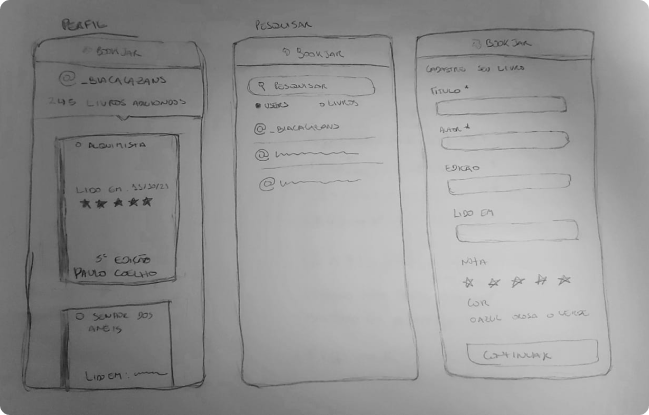 PERFIL
BOOKJAR
@_BIACALAZANS
245 LIVROS ADICIONADOS
O ALQUIMISTA
LIDO EM:
5ª EDIÇÃO
PAULO COELHO
O SENHOR DOS
ANÉIS
LIDO EM:
PESQUISAR
BOOKJAR
PESQUISAR
USERS LIVROS
@_BIACALAZANS
@
@
BOOKJAR
CADASTRE SEU LIVRO
TÍTULO *
AUTOR *
EDIÇÃO
LIDO EM
NOTA
COR
AZUL ROSA VERDE
CONTINUAR